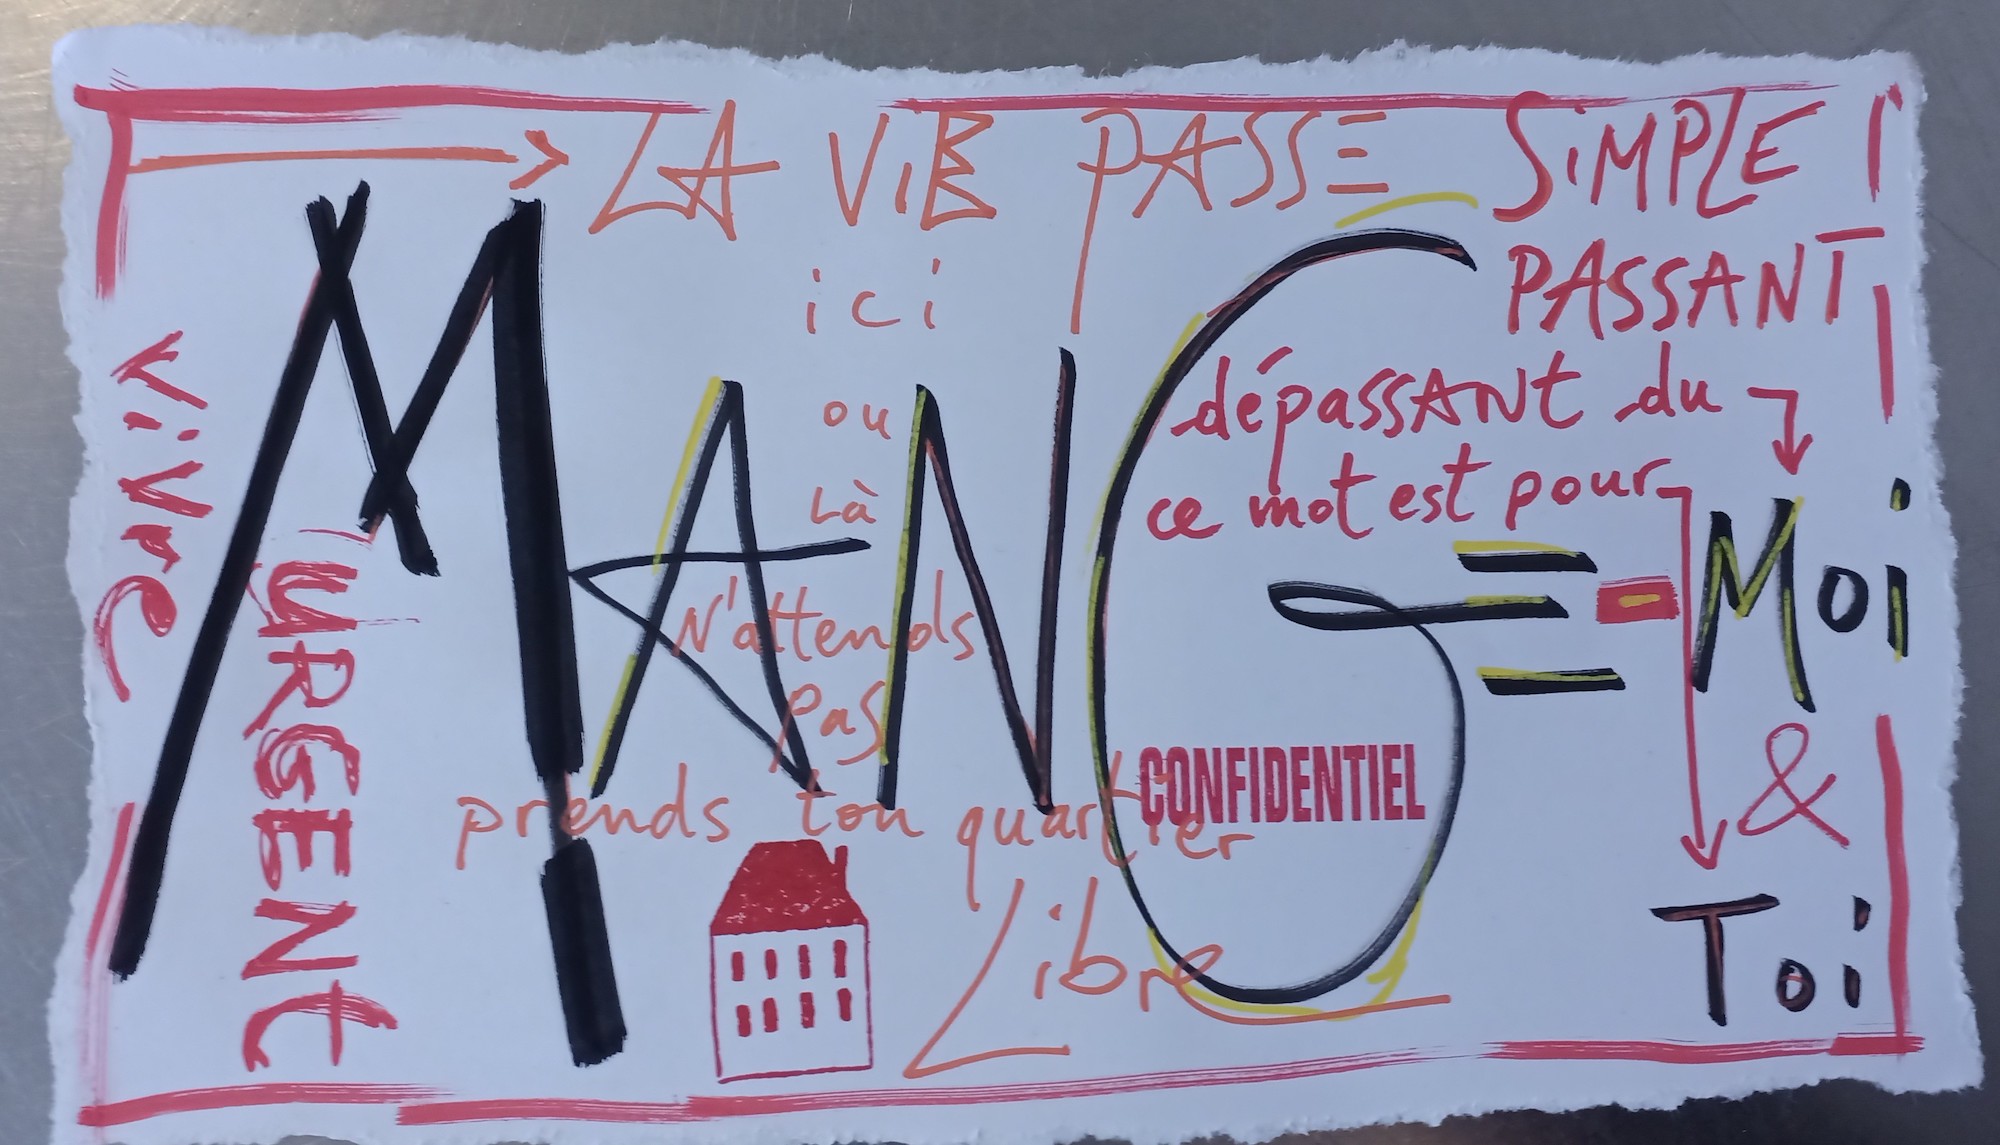 LA ViE PASSE SiMPLE
PASSANT
ici
ou
Là
N'attends
pas
prends ton quartier
Libre
dépassant du
ce mot est pour
MANGE-Moi
&
Toi
CONFIDENTIEL
ViVre
URGENt